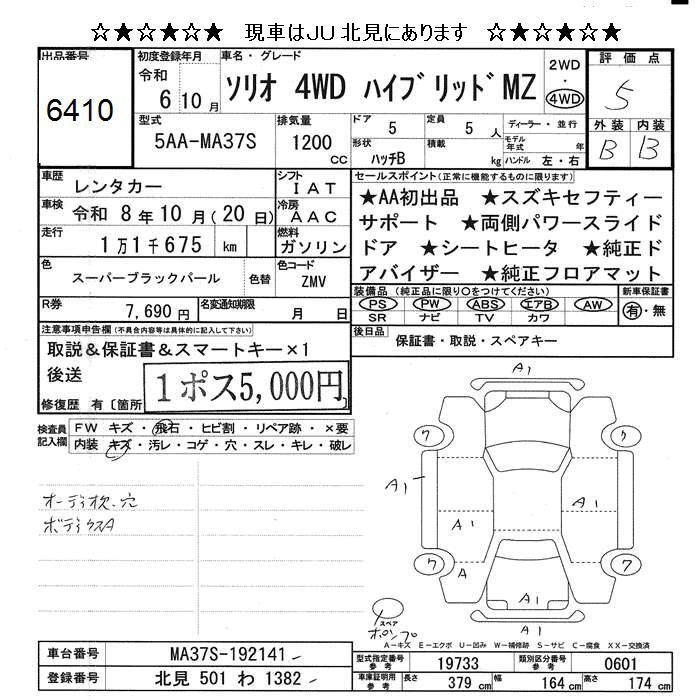 ☆★☆★☆★ 現車はJU北見にあります ☆★☆★☆★
出品番号
6410
初度登録年月
令和
6 10月
車名・グレード
ソリオ 4WD ハイブリッドMZ
2WD
・
4WD
評価点
5
型式
5AA-MA37S
排気量
1200
cc
ドア
5
定員
5 人
ディーラー・並行
形状
ハッチB
積載
kg
モデル年式
年
ハンドル 左・右
外装 内装
B B
車歴
レンタカー
シフト
IAT
車検
令和 8年10月(20日)
冷房
AAC
走行
1万1千675 km
燃料
ガソリン
色
スーパーブラックパール
色替
色コード
ZMV
R券
7,690円
名変通知期限
月 日
セールスポイント(正常に機能するものに限ります)
★AA初出品 ★スズキセフティー
サポート ★両側パワースライド
ドア ★シートヒータ ★純正ド
アバイザー ★純正フロアマット
装備品(純正品に限り○をつけてください)
PS PW ABS エアB AW
SR ナビ TV カワ
新車保証書
有・無
後日品
保証書・取説・スペアキー
注意事項申告欄(不具合内容等は具体的に記入して下さい)
取説&保証書&スマートキー×1
後送
1ポス5,000円
修復歴 有〔箇所
検査員
記入欄
FW キズ・飛石・ヒビ割・リペア跡・×要
内装 キズ・汚レ・コゲ・穴・スレ・キレ・破レ
オーディオ枕、穴
ボディクスA
A1
ワ ワ
A1
A1 A1
ワ A ワ
A1
スペア
ポンプ
A−キズ E−エクボ U−凹み W−補修跡 S−サビ C−腐食 XX−交換済
車台番号
MA37S-192141
登録番号
北見 501 わ 1382
型式指定番号
参考
19733
類別区分番号
参考
0601
車庫証明用
参考
長さ
379 cm
幅
164 cm
高さ
174 cm